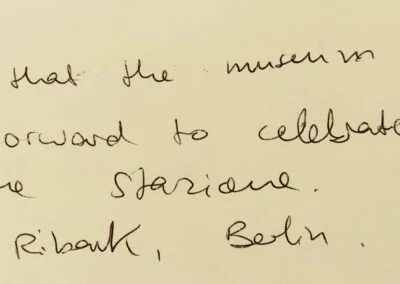 that the museum
orward to celebrate
ne Stazione.
Berlin.